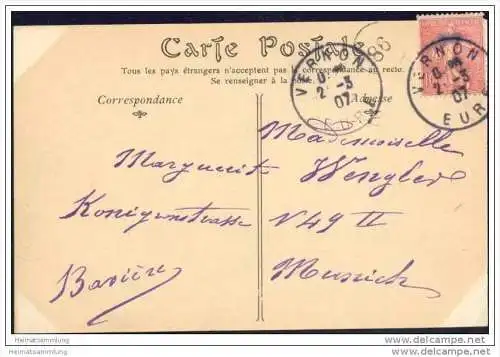 Carte Postale
Tous les pays étrangers n'acceptent pas la correspondance au recto.
Se renseigner à la poste.
Correspondance
Adresse
VERNON
2 -3
07
EURE
VERNON
2 -3
07
EURE
86
Mademoiselle
Marguerit Wengler
N 49 II
Munich
Bavière
Heimatsammlung
Heimatsammlung
Heimatsammlung
Heimatsammlung
delcampe.net